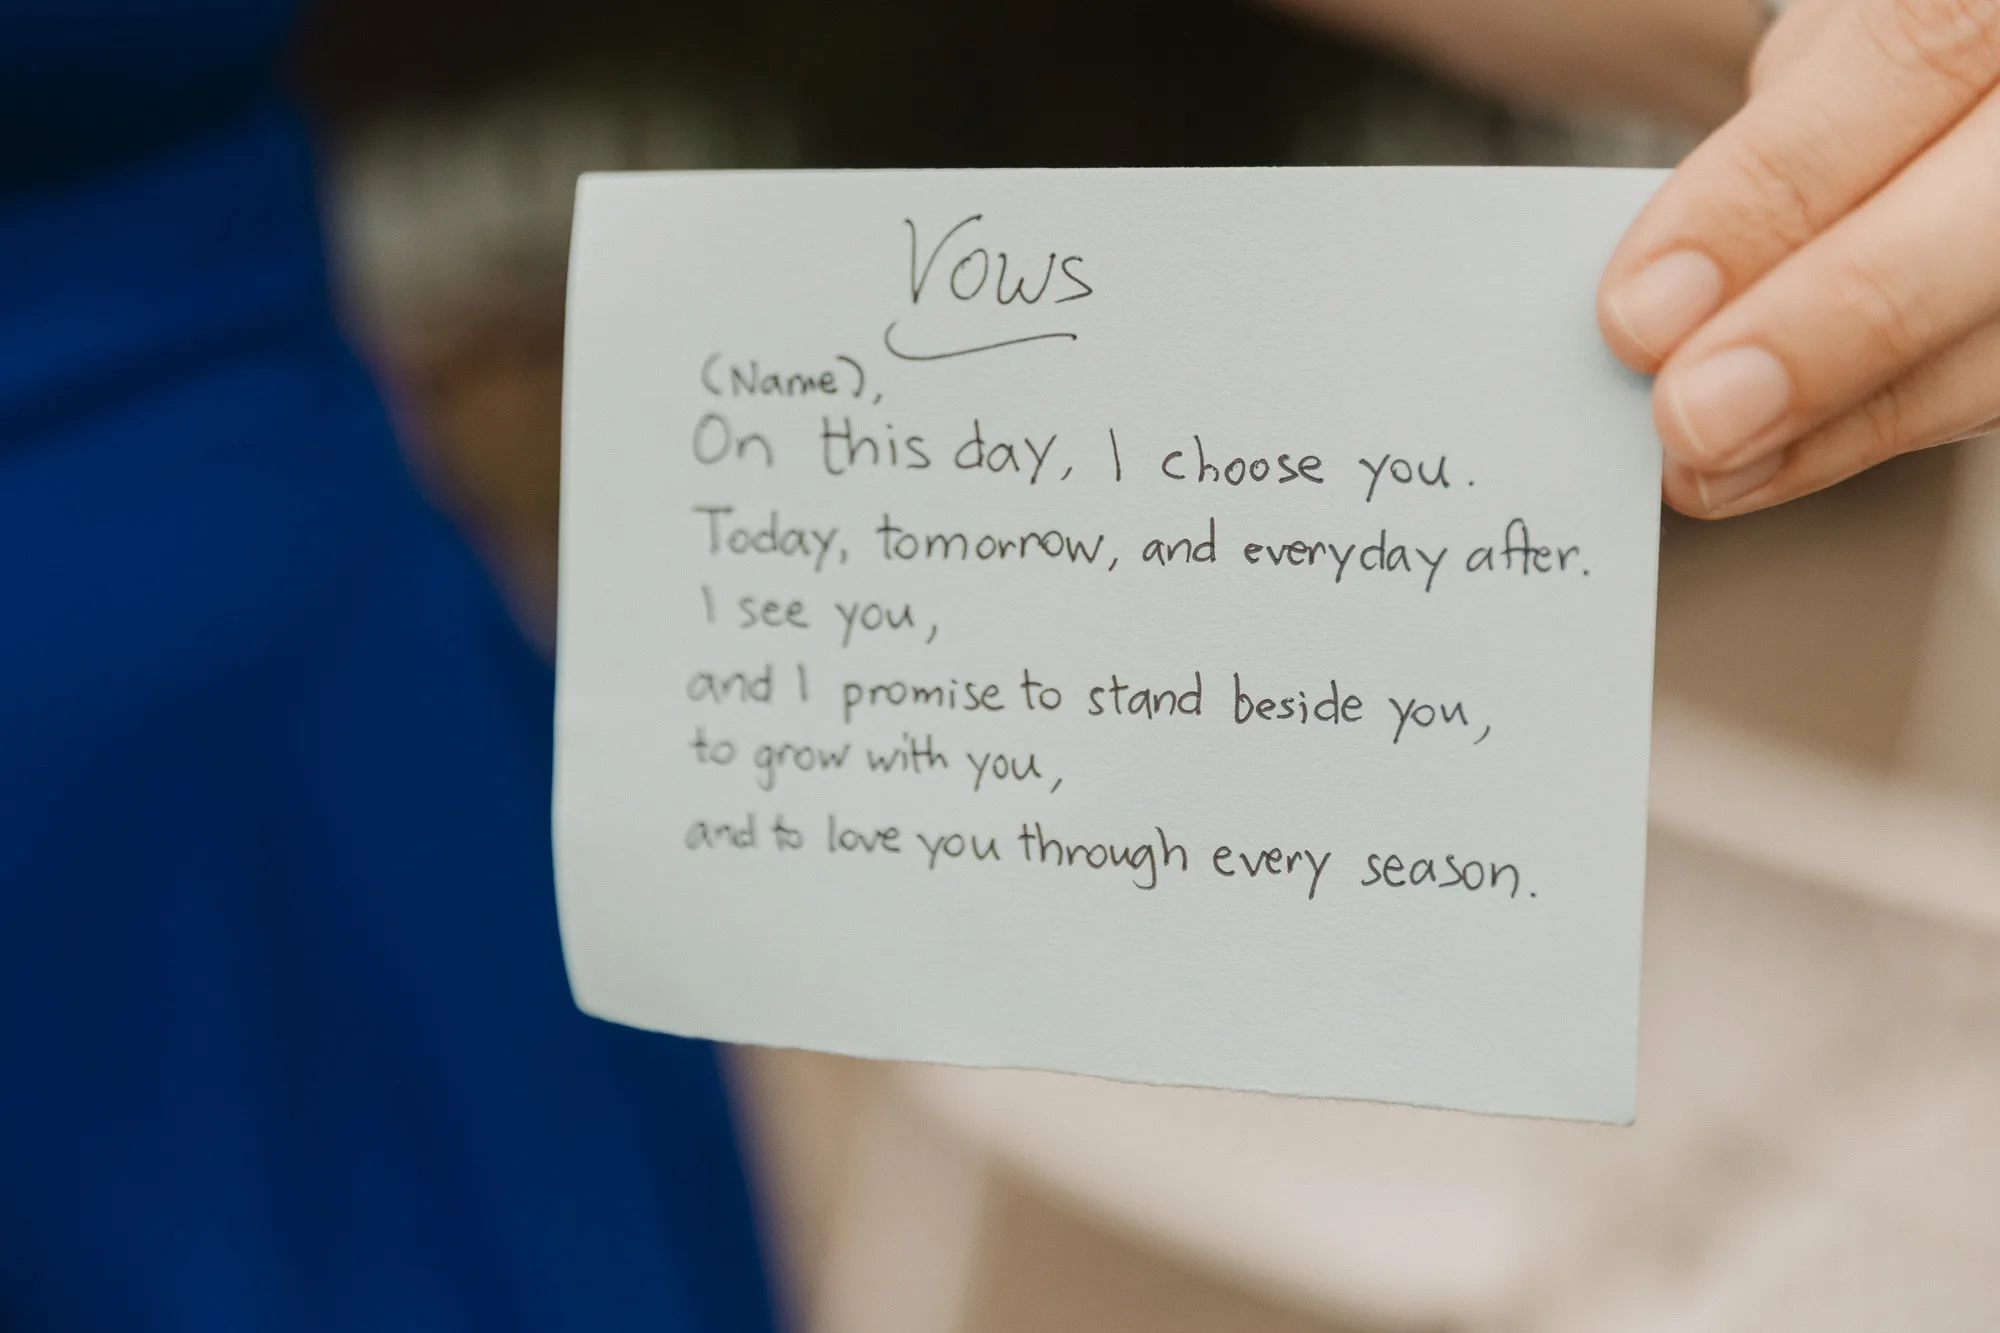 Vows
(Name),
On this day, I choose you.
Today, tomorrow, and everyday after.
I see you,
and I promise to stand beside you,
to grow with you,
and to love you through every season.